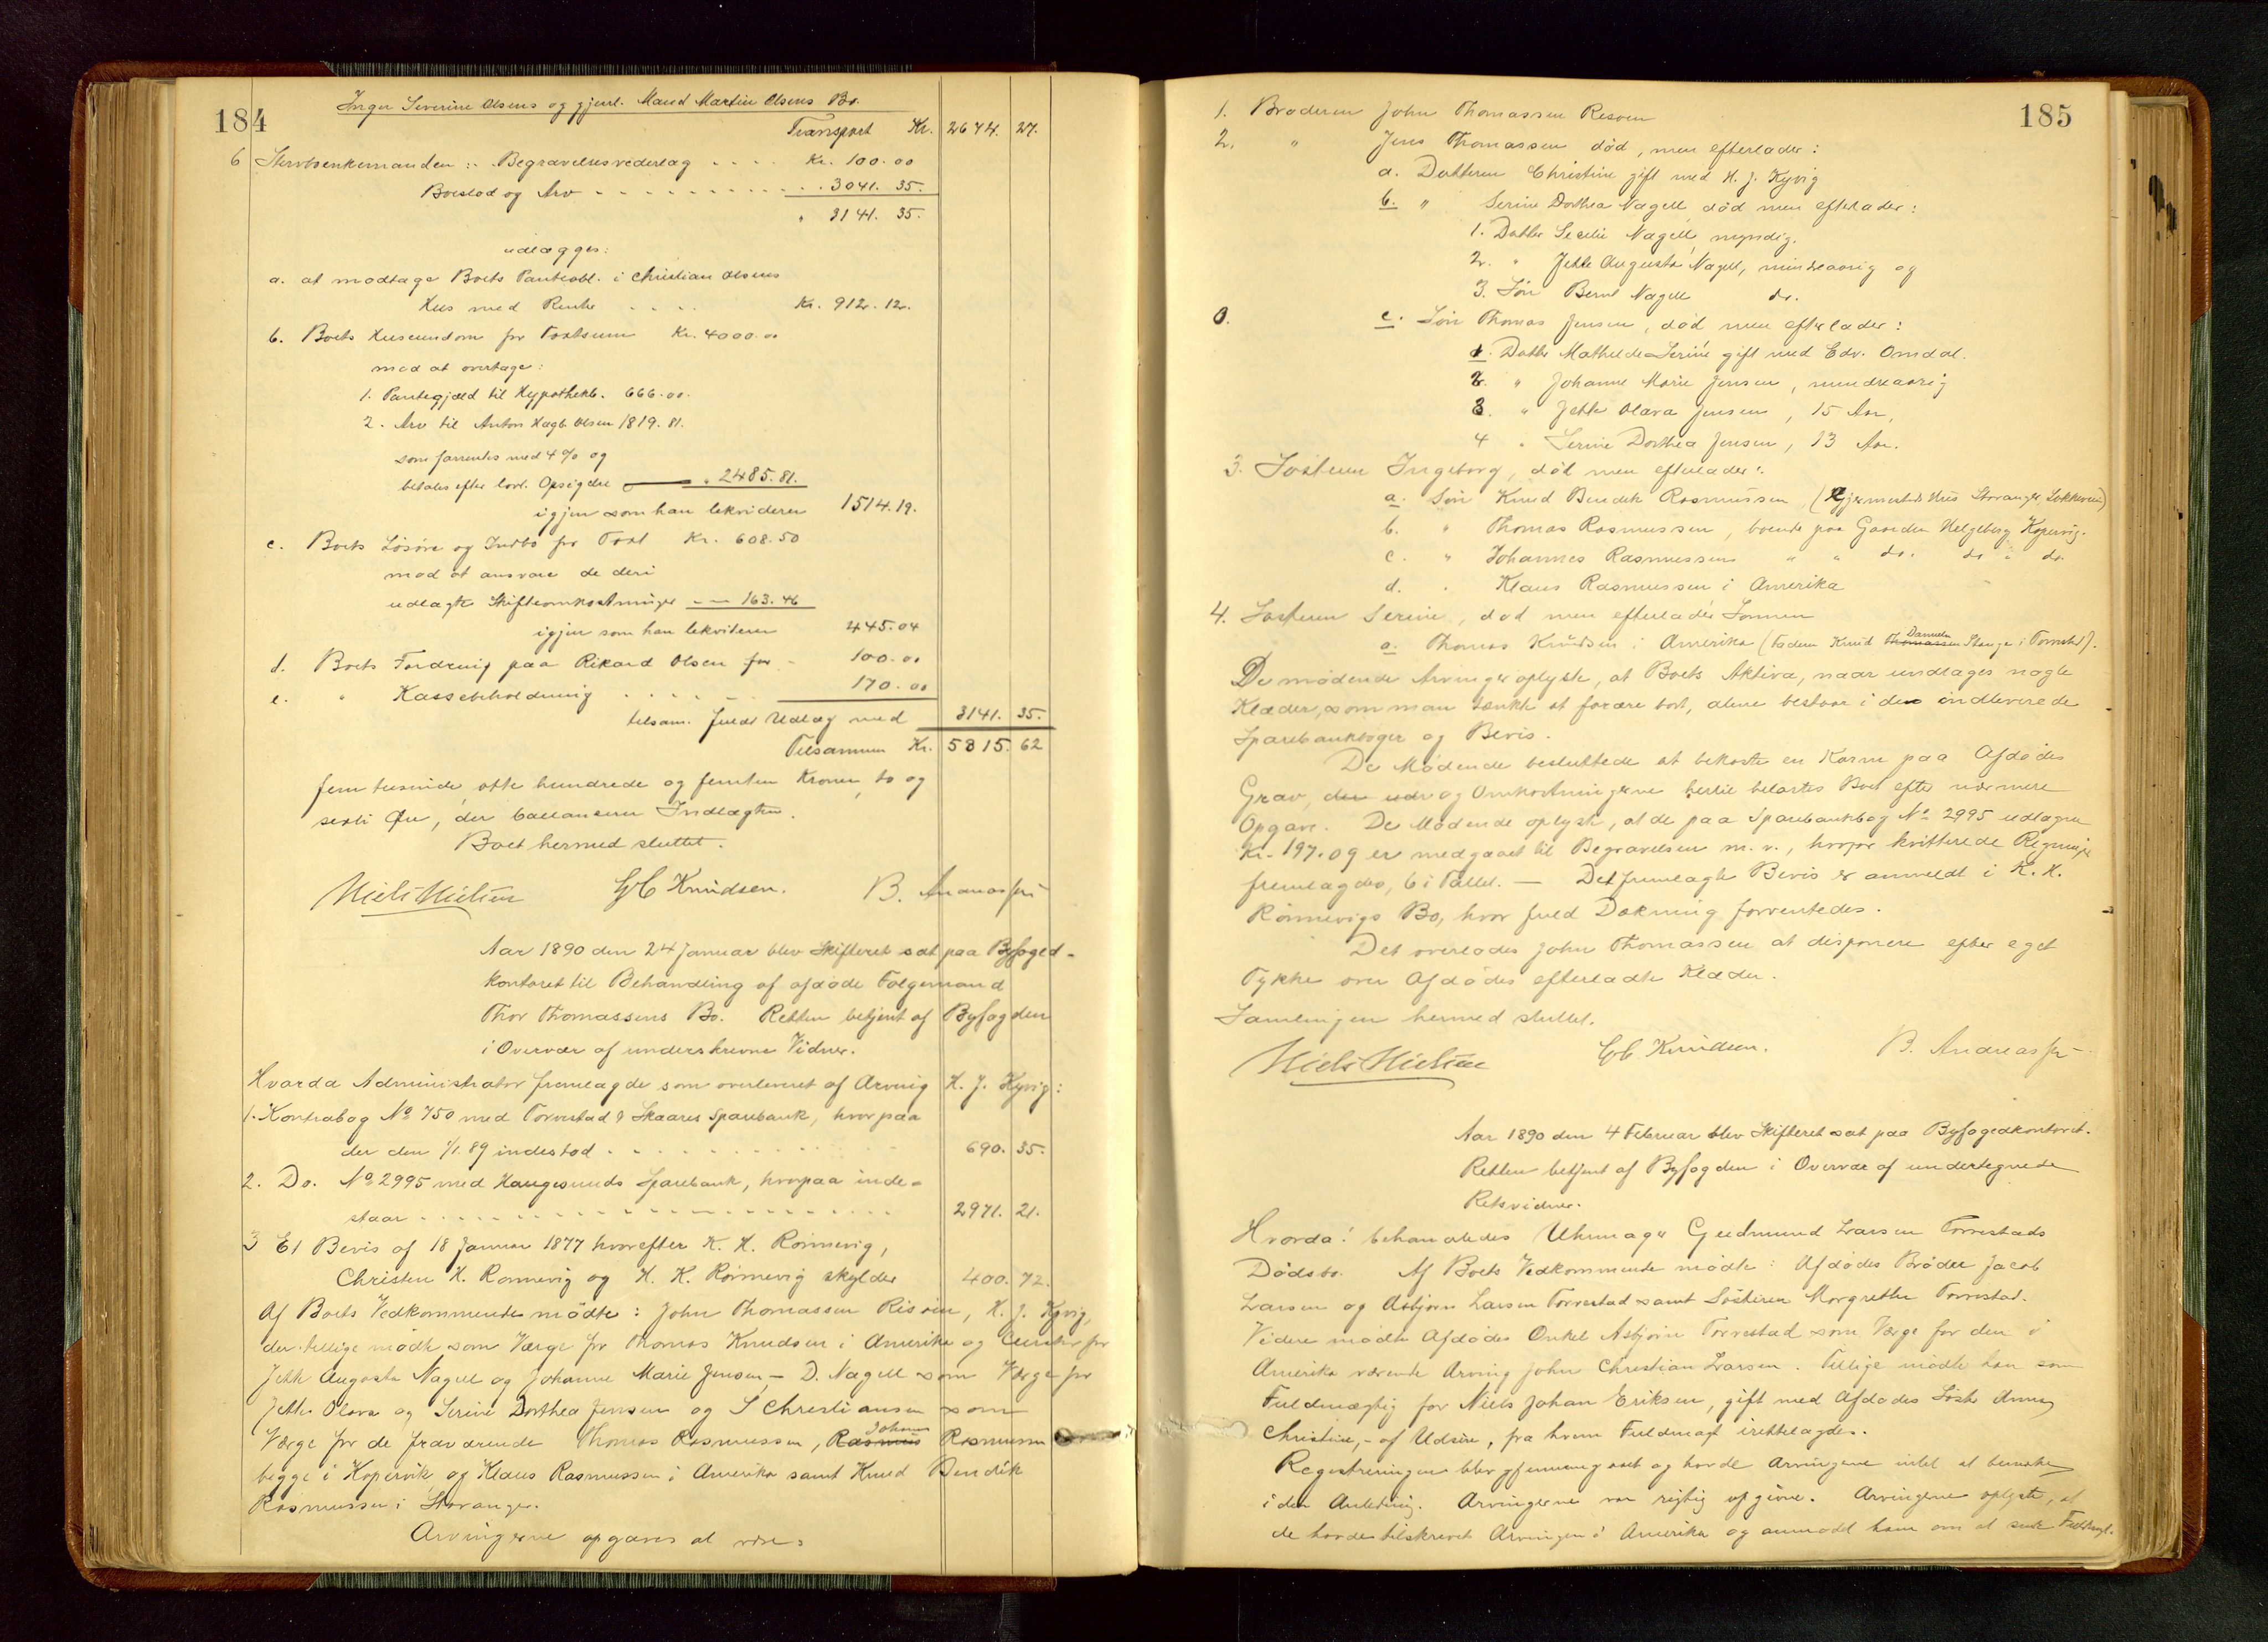 184
Inger Severine Olsens og gjenl. Mand Martin Olsens Bo.
Transport Kr. 2674. 27.
6 Stervboenkemanden: Begravelsesvederlag . . . . Kr. 100.00
Boeslod og Arv . . . . . . . . . . . 3041. 35.
" 3141. 35.
udlægges:
a. at modtage Boets Panteobl. i Christian Olsens
Hus med Rente . . . . Kr. 912. 12.
b. Boets Huseiendom for Taxtsum Kr. 4000.00
mod at overtage:
1. Pantegjæld til Hypothekb. 666.00.
2. Arv til Anton Hagb. Olsen 1819. 81.
som forrentes med 4% og
betales efter lovl. Opsigelse " 2485. 81.
igjen som han likviderer 1514. 19.
c. Boets Løsøre og Indbo for Taxt Kr. 608.50
mod at ansvare de deri
udlagte Skifteomkostninger — 163. 46
igjen som han likviderer 445. 04
d. Boets Fordring paa Rikard Olsen for - 100. 00
e. " Kassebeholdning . . . . . 170. 00
tilsam. fuldt Udlæg med 3141. 35.
Tilsammen Kr. 5815. 62
fem tusinde, otte hundrede og femten Kroner, to og
sexti Øre, der ballancerer Indtægten.
Boet hermed sluttet.
Niels Nielsen G C Knudsen. B. Andreassen
Aar 1890 den 24 Januar blev Skifteret sat paa Byfoged-
kontoret til Behandling af afdøde Følgemand
Thor Thomassens Bo. Retten betjent af Byfogden
i Overvær af underskrevne Vidner.
Hvorda Administrator fremlagde som overleveret af Arving H. J. Kyvig:
1. Kontrabog No 750 med Torvestad & Skaares Sparebank, hvorpaa
der den 1/1. 89 indestod . . . . . . . . . . 690. 35.
2. Do. No 2995 med Haugesunds Sparebank, hvorpaa inde-
staar . . . . . . . . . . . . . . . . . . 2971. 21.
3 Et Bevis af 18 Januar 1877 hvorefter K. K. Rønnevig,
Christen K. Rønnevig og K. K. Rønnevig skylder 400. 72.
Af Boets Vedkommende mødte: John Thomassen Risøen, H. J. Kyvig,
der tillige mødte som Værge for Thomas Knudsen i Amerika og Curator for
Jette Augusta Nagell og Johanne Marie Jensen, – D. Nagell som Værge for
Jette Olava og Serine Dorthea Jensen og S Christiansen som
Værge for de fraværende Thomas Rasmussen, Rasmus Johan Rasmussen
begge i Kopervik, og Klaus Rasmussen i Amerika samt Knud Bendik
Rasmussen i Stavanger.
Arvingerne opgaves at være:
185
1. Broderen John Thomassen Risøen
2. " Jens Thomassen død, men efterlader:
a. Datteren Christine gift med H. J. Kyvig
b. " Serine Dorthea Nagell, død men efterlader:
1. Datter Secelie Nagell, myndig.
2. " Jette Augusta Nagell, mindreaarig og
3. Søn Bernt Nagell do.
c. Søn Thomas Jensen, død men efterlader:
1. Datter Mathilde Serine gift med Edv. Omdal.
2. " Johanne Marie Jensen, mindreaarig
3. " Jette Olava Jensen, 15 Aar,
4 " Serine Dorthea Jensen, 13 Aar.
3. Søsteren Ingeborg, død men efterlader:
a. Søn Knud Bendik Rasmussen, ( Hus Stavanger )
b. " Thomas Rasmussen, boende paa Gaarden Helgeberg Kopervig.
c. " Johannes Rasmussen " " do. do i do.
d. " Klaus Rasmussen i Amerika
4. Søsteren Serine, død men efterlader Sønnen
a. Thomas Knudsen i Amerika (Faderen Knud Thomassen Danielsen Stange i Torvestad).
De mødende Arvinger oplyste, at Boets Aktiva, naar undtages nogle
Klæder, som man tænkte at forære bort, alene bestaar i de indleverede
Sparebankbøger og Bevis.
De Mødende besluttede at bekoste en Karm paa Afdødes
Grav, den udr og Omkostningerne hertil betaltes Boet efter nærmere
Opgave. De Mødende oplyste, at de paa Sparebankbog No 2995 udtagne
Kr. 197. 09 er medgaaet til Begravelsen m. v., hvorfor kvitterede Regninger
fremlagdes, 6 i Tallet. — Det fremlagte Bevis er anmeldt i K. K.
Rønnevigs Bo, hvor fuld Dækning forventedes.
Det overlodes John Thomassen at disponere efter eget
Tykke over Afdødes efterladte Klæder.
Samlingen hermed sluttet.
Niels Nielsen G C Knudsen. B. Andreassen
Aar 1890 den 4 Februar blev Skifteret sat paa Byfogedkontoret.
Retten betjent af Byfogden i Overvær af undertegnede
Retsvidner.
Hvorda: behandledes Uhrmager Gudmund Larsen Torvestads
Dødsbo. Af Boets Vedkommende mødte: Afdødes Brødre Jacob
Larsen og Asbjørn Larsen Torvestad samt Søsteren Margrethe Torvestad.
Videre mødte Afdødes Onkel Asbjørn Torvestad som Værge for den i
Amerika værende Arving John Christian Larsen. Tillige mødte han som
Fuldmægtig for Niels Johan Eriksen, gift med Afdødes Søster Anne
Christine, – af Udsire, fra hvem Fuldmagt irettelagdes.
Registreringen blev gjennemgaaet og havde Arvingerne intet at bemærke
i den Anledning. Arvingerne var rigtig opgivne. Arvingerne oplyste, at
de havde tilskrevet Arvingen i Amerika og anmodet ham om at sende Fuldmagt.